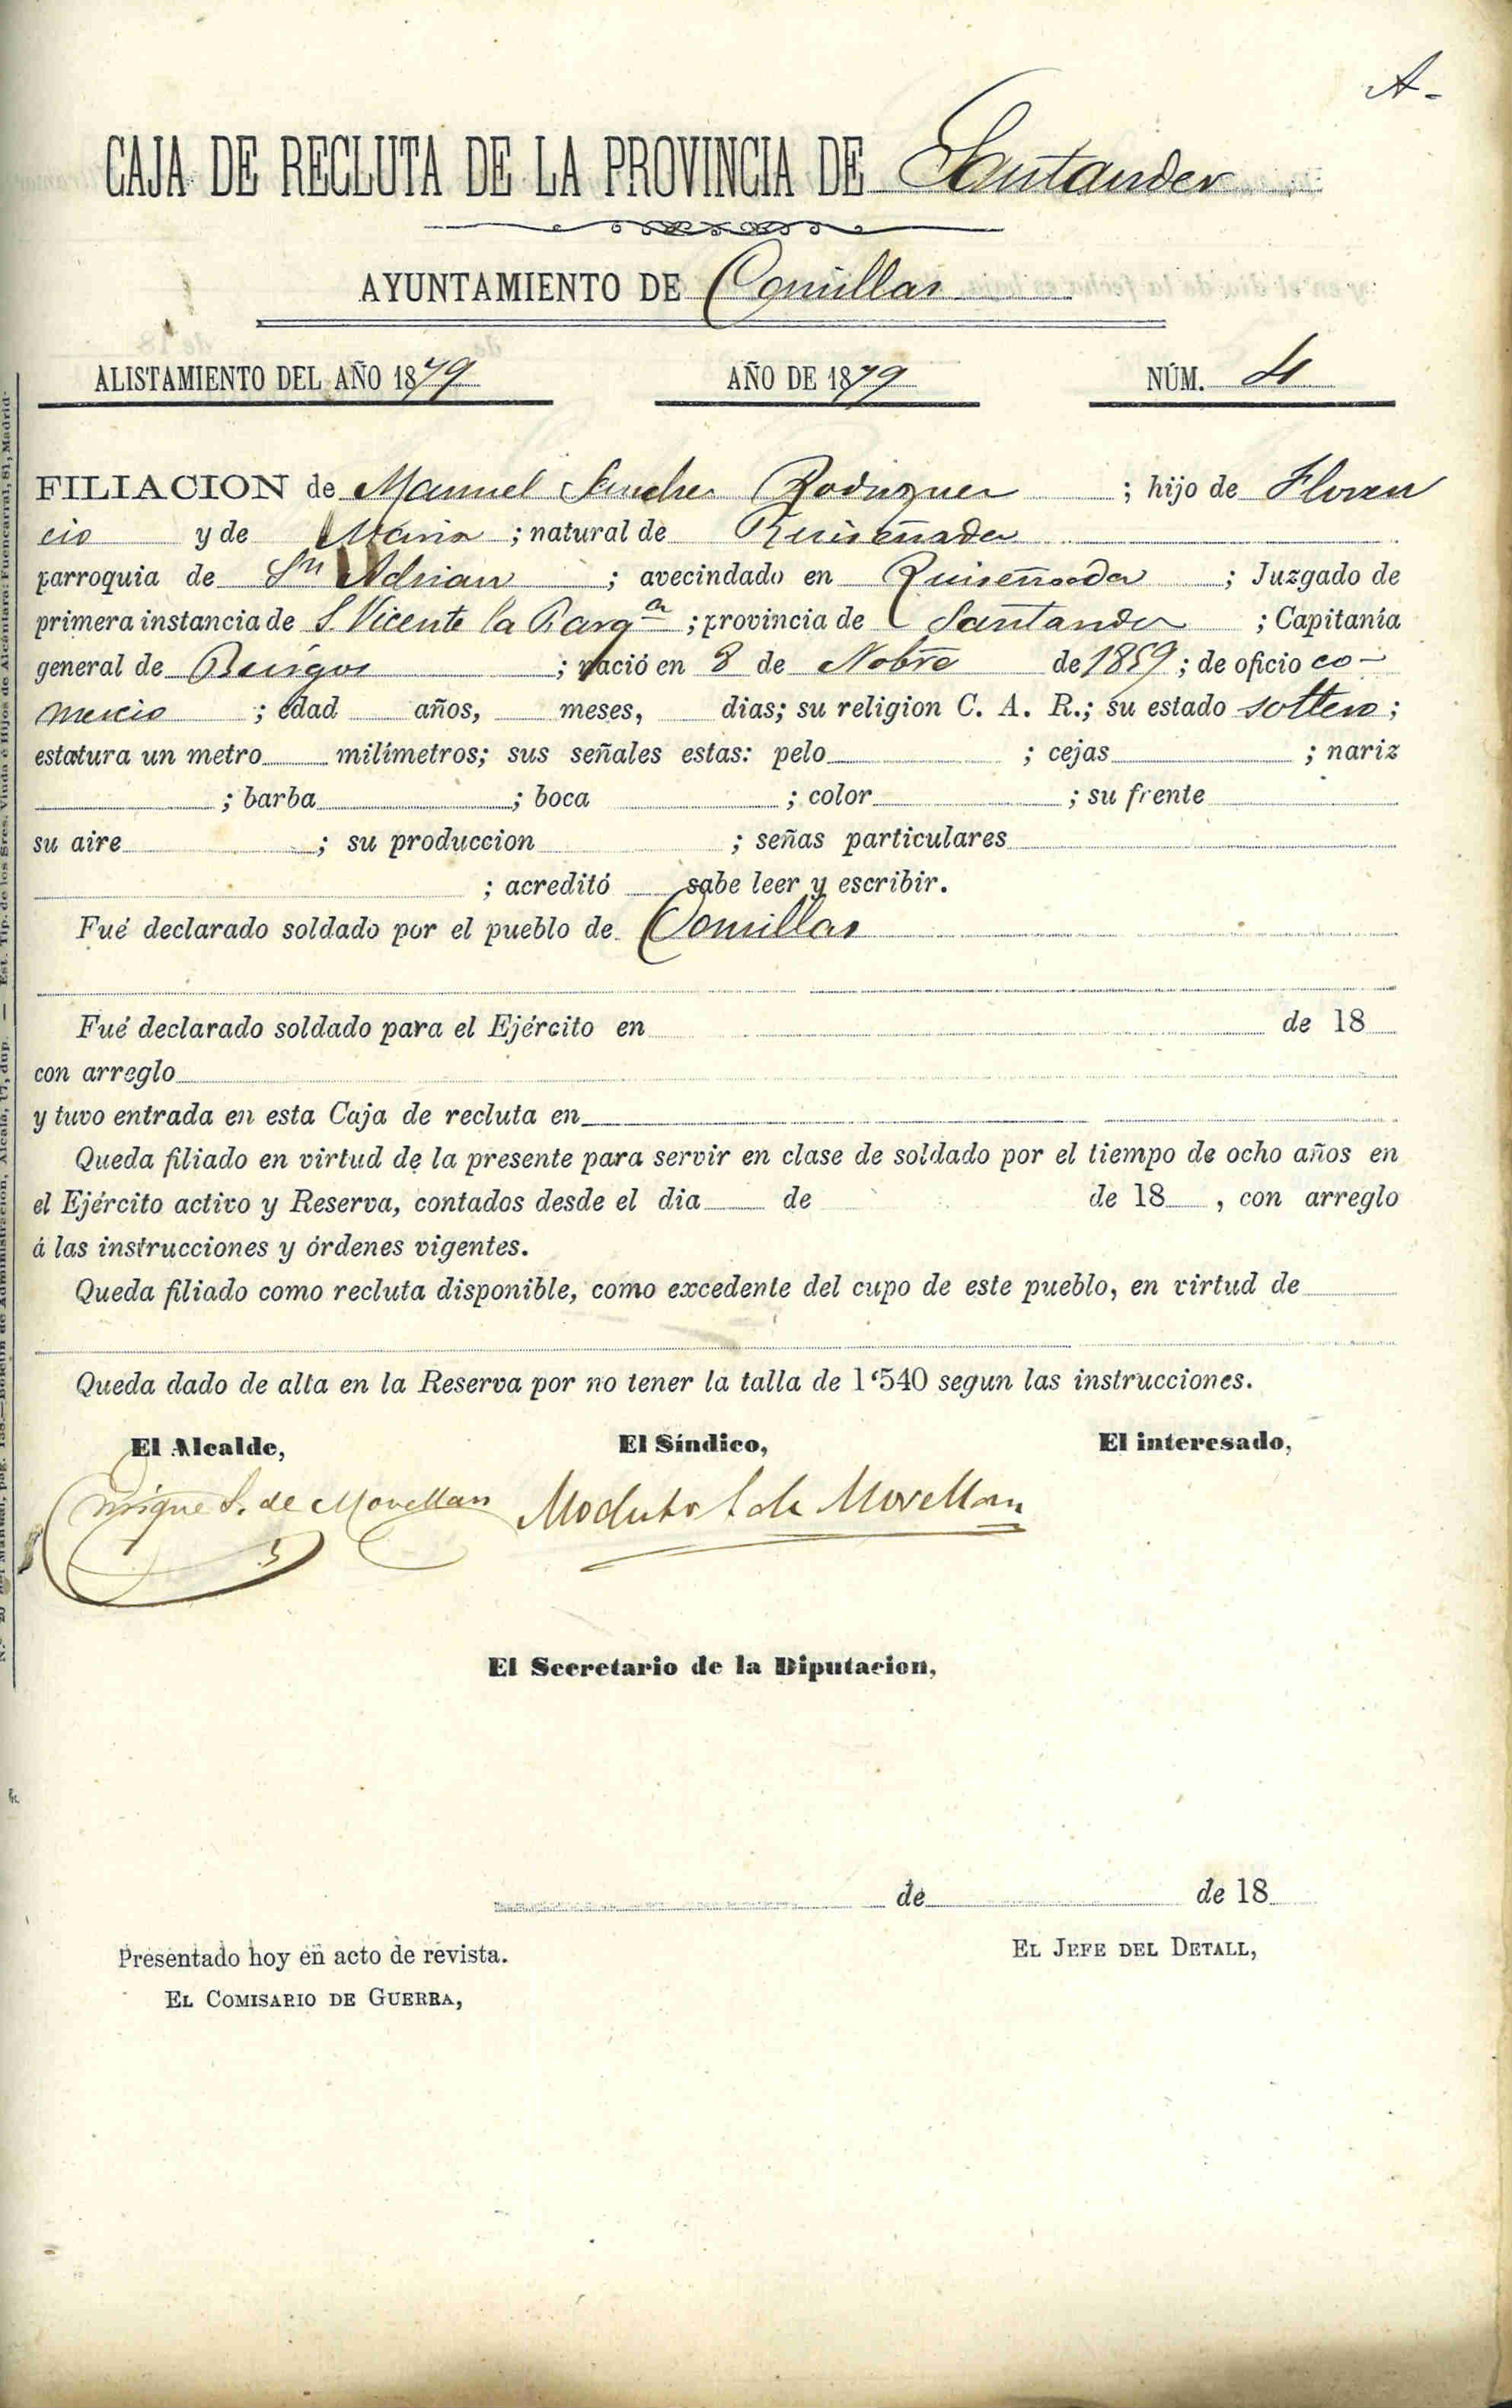 A-
CAJA DE RECLUTA DE LA PROVINCIA DE Santander
AYUNTAMIENTO DE Comillas
ALISTAMIENTO DEL AÑO 1879 AÑO DE 1879 NÚM. 4
FILIACION de Manuel Sanchez Rodriguez ; hijo de Floren
cio y de Maria ; natural de Ruiseñada
parroquia de Sn Adrian ; avecindado en Ruiseñada ; Juzgado de
primera instancia de S. Vicente la Barqa ; provincia de Santander ; Capitanía
general de Burgos ; nació en 8 de Nobre de 1859 ; de oficio co-
mercio ; edad años, meses, dias; su religion C. A. R.; su estado soltero ;
estatura un metro milímetros; sus señales estas: pelo ; cejas ; nariz
; barba ; boca ; color ; su frente
su aire ; su produccion ; señas particulares
; acreditó sabe leer y escribir.
Fué declarado soldado por el pueblo de Comillas
Fué declarado soldado para el Ejército en de 18
con arreglo
y tuvo entrada en esta Caja de recluta en
Queda filiado en virtud de la presente para servir en clase de soldado por el tiempo de ocho años en
el Ejército activo y Reserva, contados desde el dia de de 18 , con arreglo
á las instrucciones y órdenes vigentes.
Queda filiado como recluta disponible, como excedente del cupo de este pueblo, en virtud de
Queda dado de alta en la Reserva por no tener la talla de 1‘540 segun las instrucciones.
El Alcalde, El Síndico, El interesado,
S. de Movellan Modesto S de Movellan
El Secretario de la Diputacion,
de de 18
Presentado hoy en acto de revista. EL JEFE DEL DETALL,
EL COMISARIO DE GUERRA,